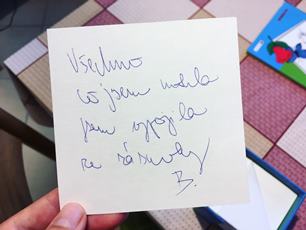 Všechno
co jsem mohla
jsem vypojila
ze zásuvky
B.